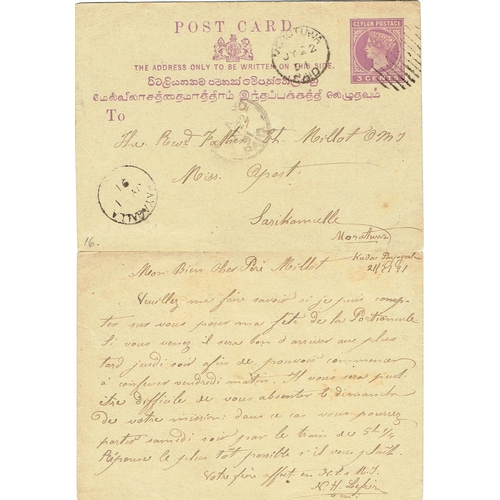 POST CARD.
CEYLON POSTAGE
3 CENTS
THE ADDRESS ONLY TO BE WRITTEN ON THIS SIDE
மேல்விலாசத்தைமாத்திரம் இந்தப்பக்கத்தி லெழுதவும்
To
The Revd Father Ch. Millot OMI
Miss. Apost.
Moratuwa
16.
21/7/91
Mon Bien cher Père Millot
Veuillez me faire savoir si je puis comp-
ter sur vous pour ma fête de la Portioncule
Si vous venez il sera bon d'arriver au plus
tard jeudi soir afin de pouvoir commencer
à confesser vendredi matin. Il vous sera peut
être difficile de vous absenter le dimanche
de votre mission: dans ce cas vous pourrez
partir samedi soir par le train de 5h ¼
Réponse le plus tôt possible s'il vous plait.
Votre frère affect. en
o.m.i.